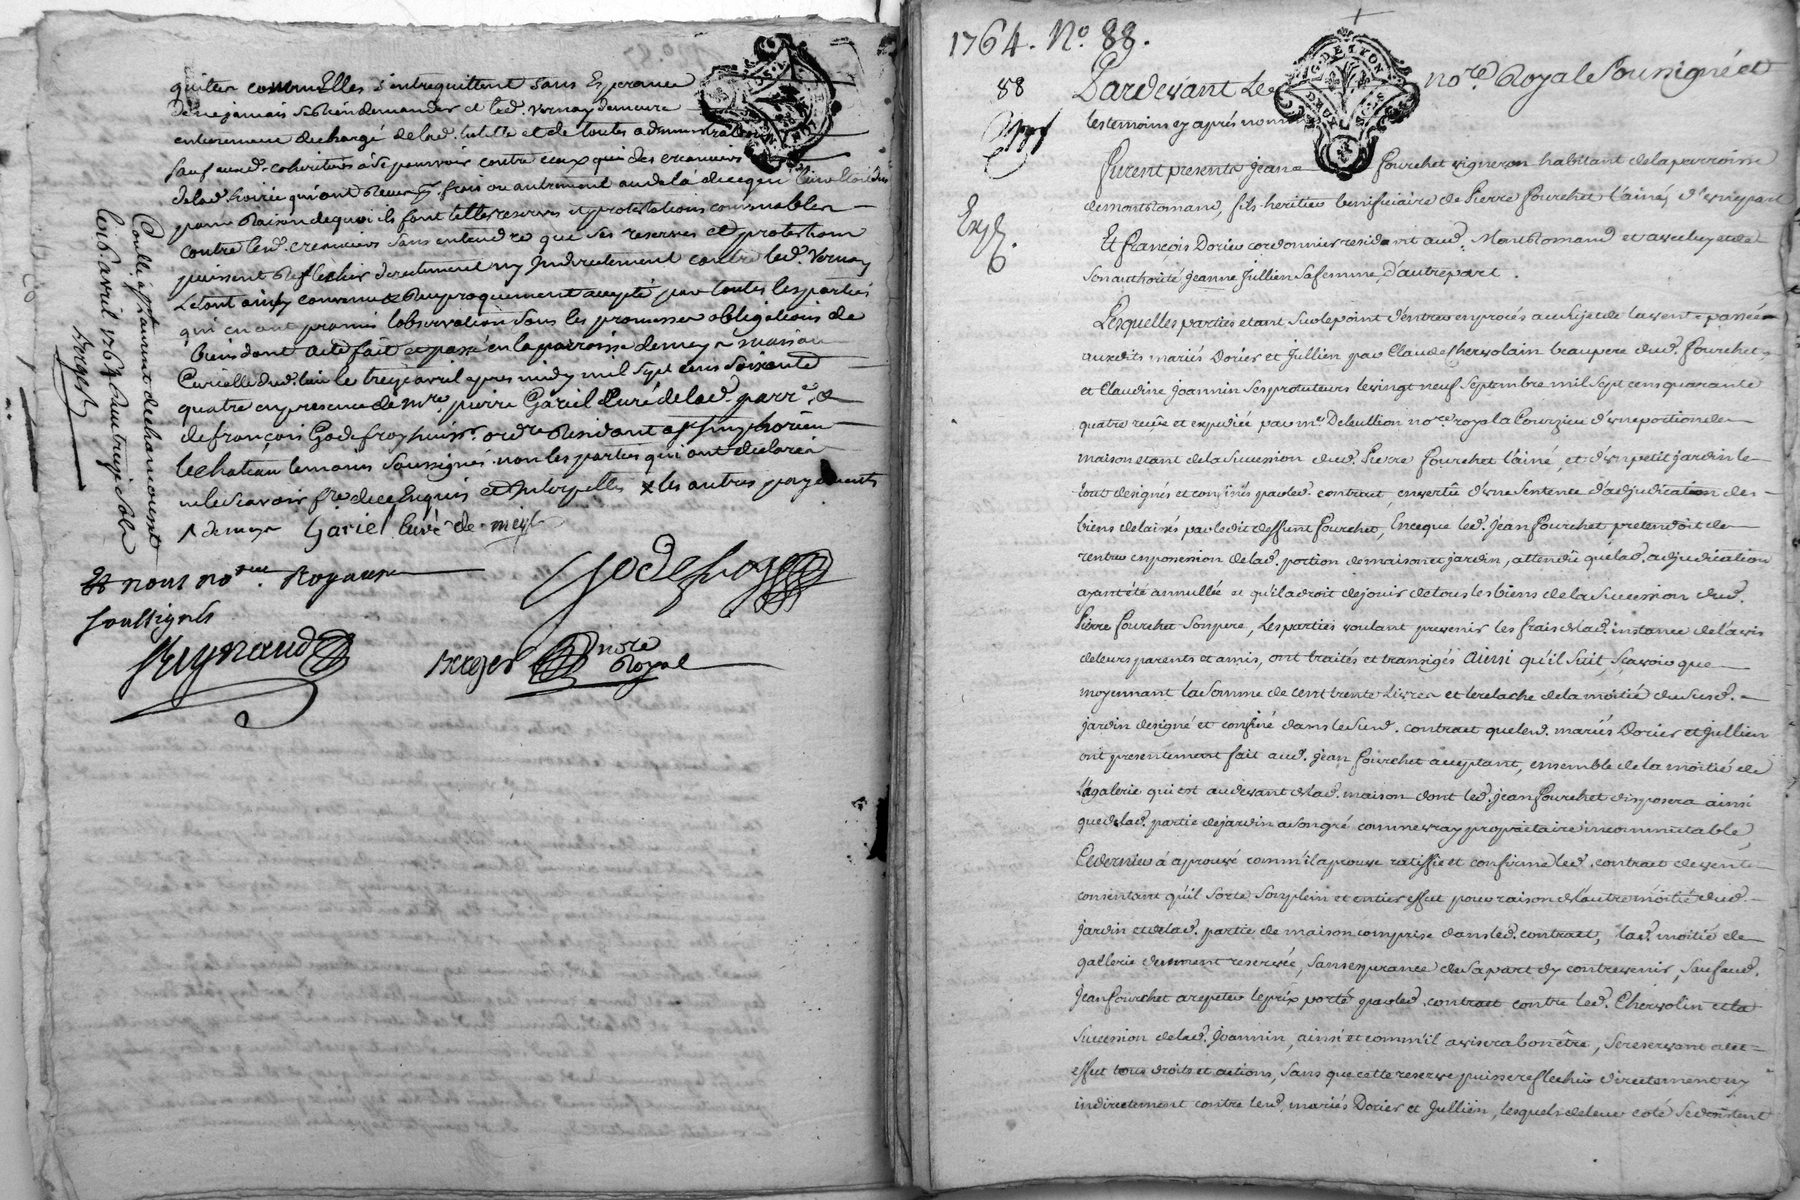 quitter communelles s'entrequittent sans Esperance
de ne jamais se rien demander et led. Vernay demeure
entierement dechargé de lad. tutelle et de toutes administrations
sauf auxd. coheritiers à se pourvoir contre ceux qui des creanciers
delad. hoirie qui ont frais ou autrement audela de ce qui
pour Raison dequoi ils font telles reserves et protestations convenables
contre led. creanciers sans entendre que ses reserves et protestations
puissent Reflechir directement ny Indirectement contre led. Vernay
Le tout ainsy convenu & Reciproquement accepté par toutes les parties
qui en ont promis l'observation sous les promesses obligations de
biens dont acte fait et passé en la parroisse de meys maison
Curialle dud. lieu le treize avril apres midy mil sept cens soixante
quatre en presence de mre. pierre Gariel Curé de lad. parr. &
de françois Godefroy huissr. ordre. Residant a st simphorien
le chateau temoins soussignés. non les parties qui ont declaré
ne le scavoir fre. de ce Enquis et Interpellés x les autres payements
Gariel Curé de meys
& nous nore. Royaux
soussignés
Godefroy
Reynaud
Berger nore Royal
Conllé, a st laurent de chamousset
le 26. avril 1764. Reçu treize sols
Berger
1764. No. 88.
88
Exp.
Pardevant Le nore. Royal Soussigné et
les temoins cy après nommés
Furent presents Jean Fourchet vigneron habitant de la parroisse
de montromand, fils heritier beneficiaire de Pierre fourchet l'ainé, d'une part
Et françois Dorier cordonnier residant aud. Montromand et avec luy et de
son authorité jeanne Jullien sa femme, d'autre part.
Lesquelles parties etant sur le point d'entrer en procés au sujet de la vente passée
auxdits mariés Dorier et Jullien par Claude Chervolain beaupere dud. fourchet
et Claudine Joannin ses protuteurs le vingt neuf Septembre mil sept cens quarante
quatre reçüe et expediée par me. Deleullion nore. royal a Courzieu d'une portion de
maison etant de la Succession dud. Pierre fourchet l'ainé, et d'un petit jardin le
tout designés et confinés par led. contract, en vertû d'une sentence d'adjudication des
biens delaissés par ledit deffunt fourchet, Ence que led. jean fourchet pretendoit de
rentrer en possession de lad. portion de maison et jardin, attendû que lad. adjudication
ayant été annullée et qu'il a droit de jouir de tous les biens de la Succession dud.
Pierre fourchet son pere, Les parties voulant prevenir les frais de lad. instance de l'avis
de leurs parents et amis, ont traités et transigés ainsi qu'il suit, sçavoir que
moyennant la somme de cent trente Livres et le relache de la moitié du susd.
jardin designé et confiné dans le susd. contract que led. mariés Dorier et Jullien
ont presentement fait aud. jean fourchet acceptant, ensemble de la moitié de
Lagalerie qui est audevant de lad. maison dont led. jean fourchet disposera ainsi
que de lad. partie de jardin a son gré comme vray proprietaire incommutable,
Ce dernier à aprouvé comm'il aprouve ratiffie et confirme led. contract de vente
consentant qu'il sorte son plein et entier effet pour raison de l'autre moitié dud.
jardin et de lad. partie de maison comprise dans led. contract, lad. moitié de
gallerie demeurant reservée, sans esperance de sa part d'y contrevenir, Sauf aud.
Jean fourchet a repeter le prix porté par led. contract contre led. Chervolin et la
succession de lad. Joannin, ainsi et comm'il avisera bon être, se reservant a cet
effet tous droits et actions, sans que cette reserve puisse reflechir directement ny
indirectement contre led. mariés Dorier et Jullien, lesquels de leur coté se desistent